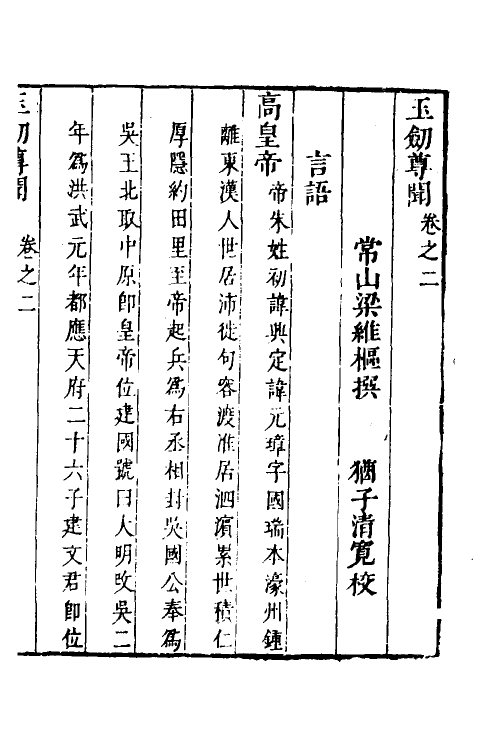 玉劒尊聞 卷之二
常山梁維樞撰 猶子清寬校
言語
高皇帝 帝朱姓初諱興定諱元璋字國瑞本濠州鍾
離東漢人世居沛徙句容渡淮居泗濱累世積仁
厚隱約田里至帝起兵爲右丞相封吳國公奉爲
吳王北取中原卽皇帝位建國號曰大明改吳二
年爲洪武元年都應天府二十六子建文君卽位
玉劒尊聞 卷之二